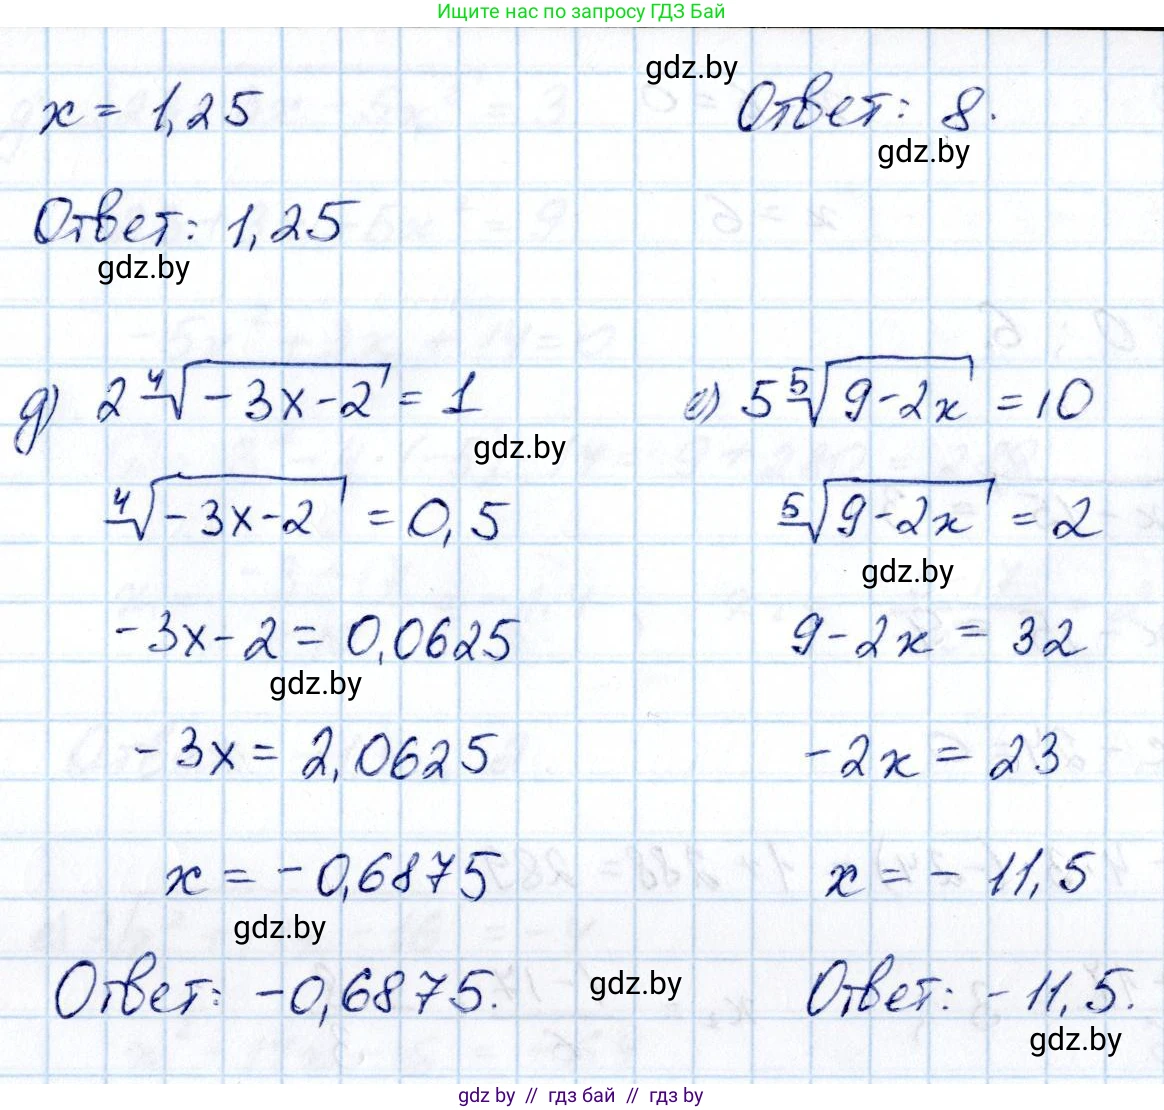 Ищите нас по запросу ГДЗ Бай
gdz.by
x = 1,25
Ответ: 1,25
gdz.by
Ответ: 8.
gdz.by
д) 2 ⁴√(-3x-2) = 1
gdz.by
⁴√(-3x-2) = 0,5
-3x-2 = 0,0625
gdz.by
-3x = 2,0625
x = -0,6875
gdz.by
Ответ: -0,6875.
gdz.by
е) 5 ⁵√(9-2x) = 10
⁵√(9-2x) = 2
gdz.by
9-2x = 32
-2x = 23
x = -11,5
Ответ: -11,5.
gdz.by
gdz by // гдз бай // гдз by